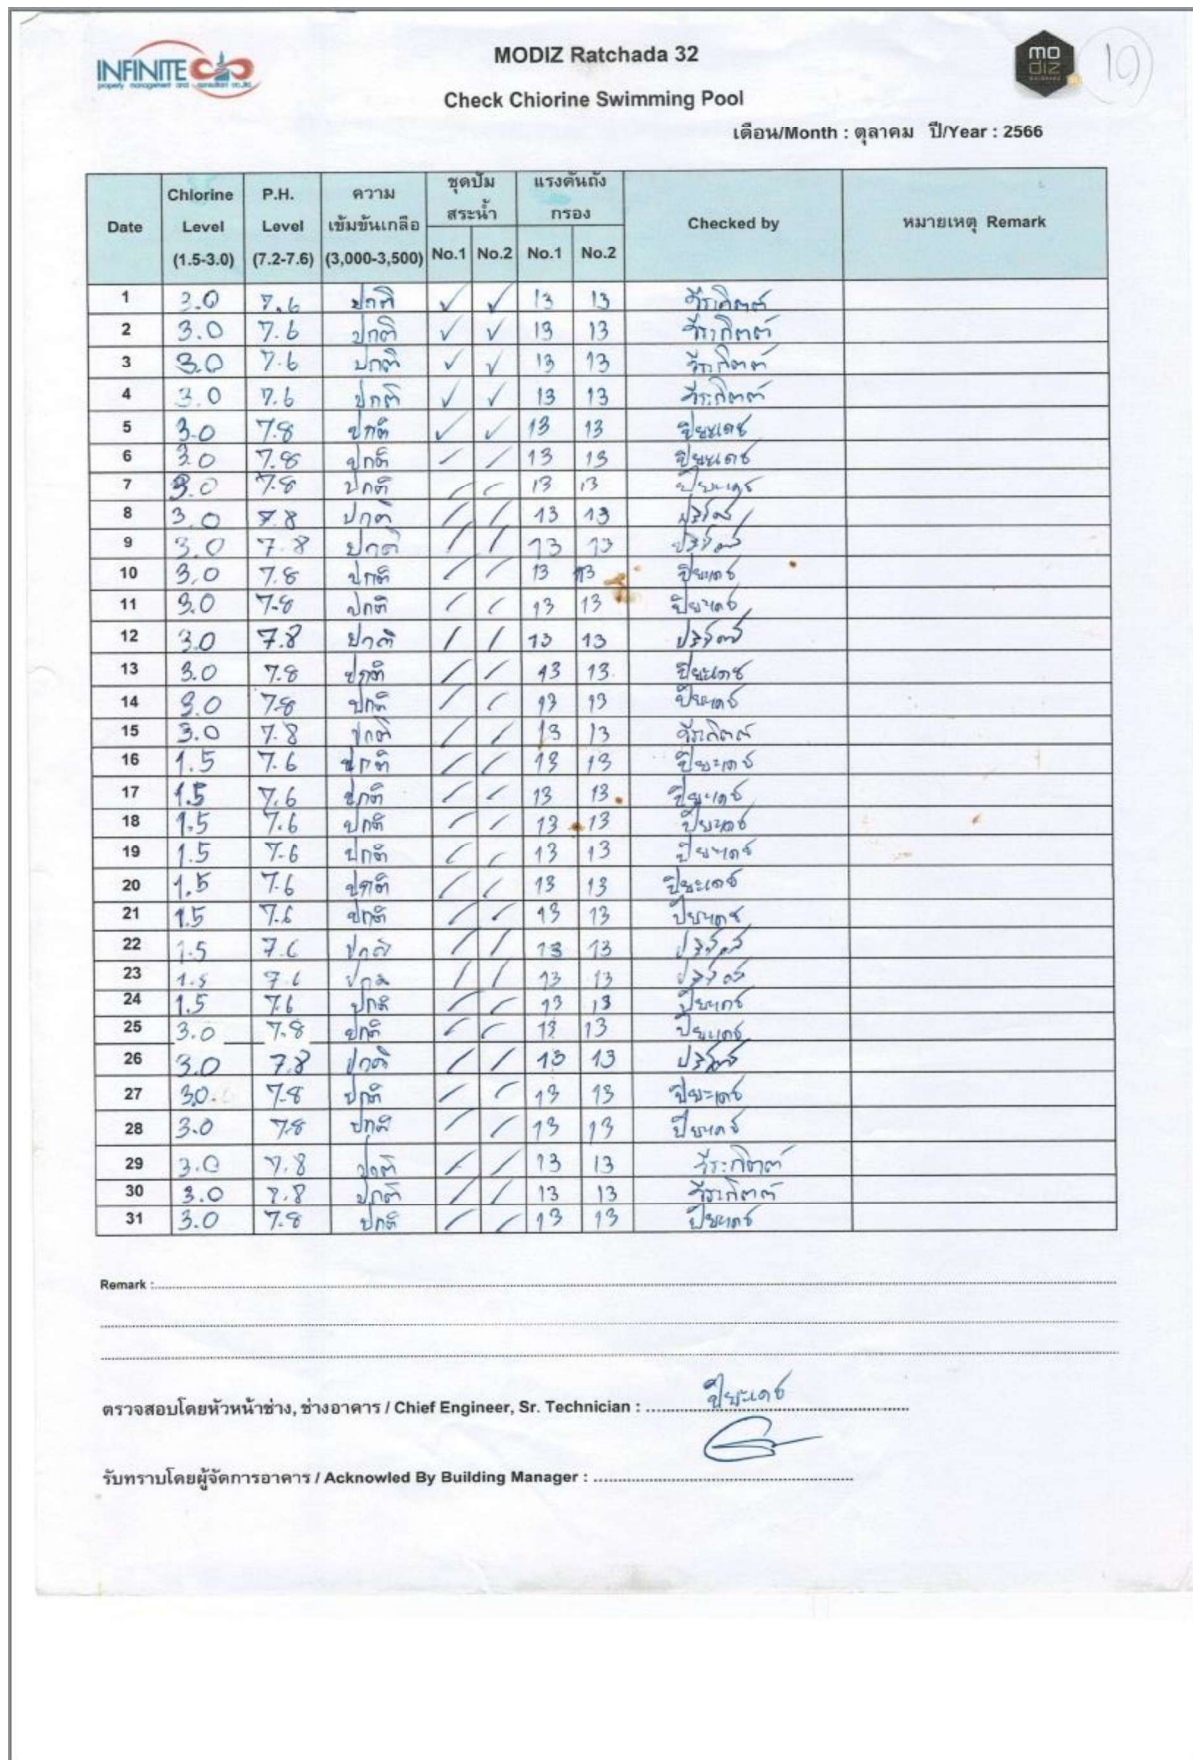 INFINITE
property management and consultant co.,ltd.
MODIZ Ratchada 32
mo
diz
10
Check Chiorine Swimming Pool
เดือน/Month : ตุลาคม ปี/Year : 2566
Date Chlorine Level (1.5-3.0) P.H. Level (7.2-7.6) ความเข้มข้นเกลือ (3,000-3,500) ชุดปั๊มสระน้ำ No.1 No.2 แรงดันถังกรอง No.1 No.2 Checked by หมายเหตุ Remark
1 3.0 7.6 ปกติ ✓ ✓ 13 13 วีระกิตต์
2 3.0 7.6 ปกติ ✓ ✓ 13 13 วีระกิตต์
3 3.0 7.6 ปกติ ✓ ✓ 13 13 วีระกิตต์
4 3.0 7.6 ปกติ ✓ ✓ 13 13 วีระกิตต์
5 3.0 7.8 ปกติ ✓ ✓ 13 13 ปิยะเดช
6 3.0 7.8 ปกติ / / 13 13 ปิยะเดช
7 3.0 7.8 ปกติ / / 13 13 ปิยะเดช
8 3.0 7.8 ปกติ / / 13 13
9 3.0 7.8 ปกติ / / 13 13
10 3.0 7.8 ปกติ / / 13 13 ปิยะเดช
11 3.0 7.8 ปกติ / / 13 13 ปิยะเดช
12 3.0 7.8 ปกติ / / 13 13
13 3.0 7.8 ปกติ / / 13 13 ปิยะเดช
14 3.0 7.8 ปกติ / / 13 13 ปิยะเดช
15 3.0 7.8 ปกติ / / 13 13 วีระกิตต์
16 1.5 7.6 ปกติ / / 13 13 ปิยะเดช
17 1.5 7.6 ปกติ / / 13 13 ปิยะเดช
18 1.5 7.6 ปกติ / / 13 13 ปิยะเดช
19 1.5 7.6 ปกติ / / 13 13 ปิยะเดช
20 1.5 7.6 ปกติ / / 13 13 ปิยะเดช
21 1.5 7.6 ปกติ / / 13 13 ปิยะเดช
22 1.5 7.6 ปกติ / / 13 13
23 1.5 7.6 ปกติ / / 13 13
24 1.5 7.6 ปกติ / / 13 13 ปิยะเดช
25 3.0 7.8 ปกติ / / 13 13 ปิยะเดช
26 3.0 7.8 ปกติ / / 13 13
27 3.0 7.8 ปกติ / / 13 13 ปิยะเดช
28 3.0 7.8 ปกติ / / 13 13 ปิยะเดช
29 3.0 7.8 ปกติ / / 13 13 วีระกิตต์
30 3.0 7.8 ปกติ / / 13 13 วีระกิตต์
31 3.0 7.8 ปกติ / / 13 13 ปิยะเดช
Remark :
ตรวจสอบโดยหัวหน้าช่าง, ช่างอาคาร / Chief Engineer, Sr. Technician : ปิยะเดช
รับทราบโดยผู้จัดการอาคาร / Acknowled By Building Manager :